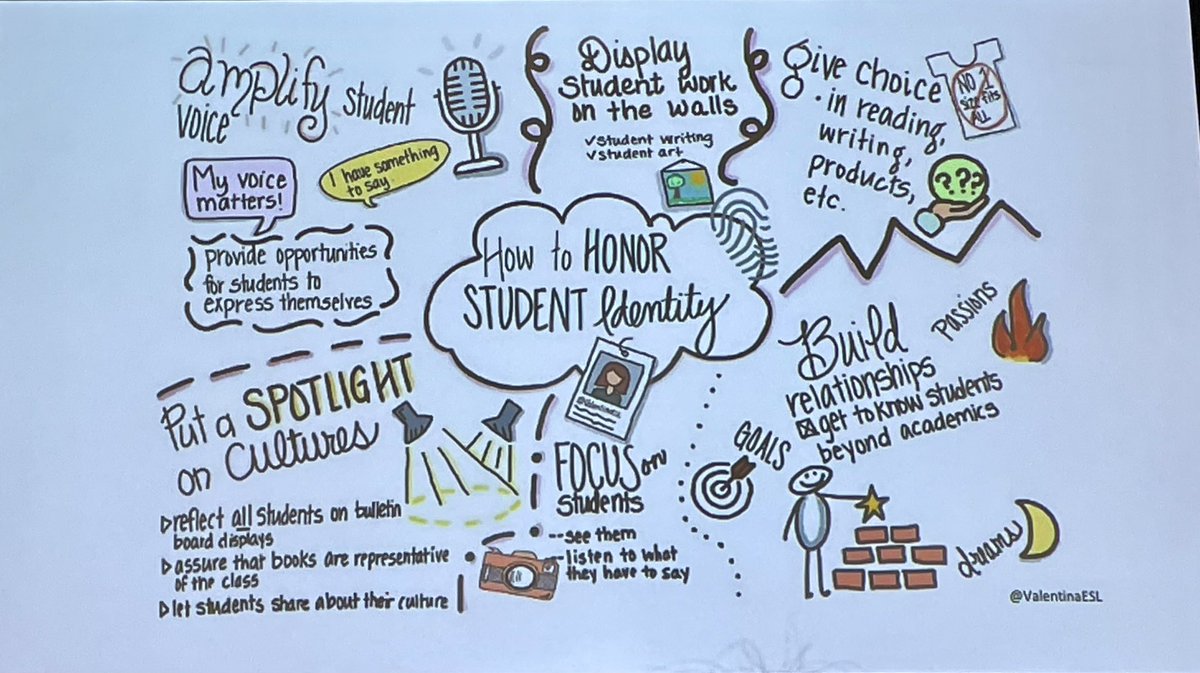 amplify student
voice
My voice
matters!
I have something
to say.
provide opportunities
for students to
express themselves
Display
student work
on the walls
✓student writing
✓student art
Give choice
· in reading,
writing,
products,
etc.
NO 1
size fits
ALL
???
How to HONOR
STUDENT Identity
@ValentinaESL
Put a SPOTLIGHT
on Cultures
▷reflect all students on bulletin
board displays
▷assure that books are representative
of the class
▷let students share about their culture
FOCUS on
students
--see them
--listen to what
they have to say
Build
relationships
☒get to know students
beyond academics
PASSIONS
GOALS
dreams
@ValentinaESL